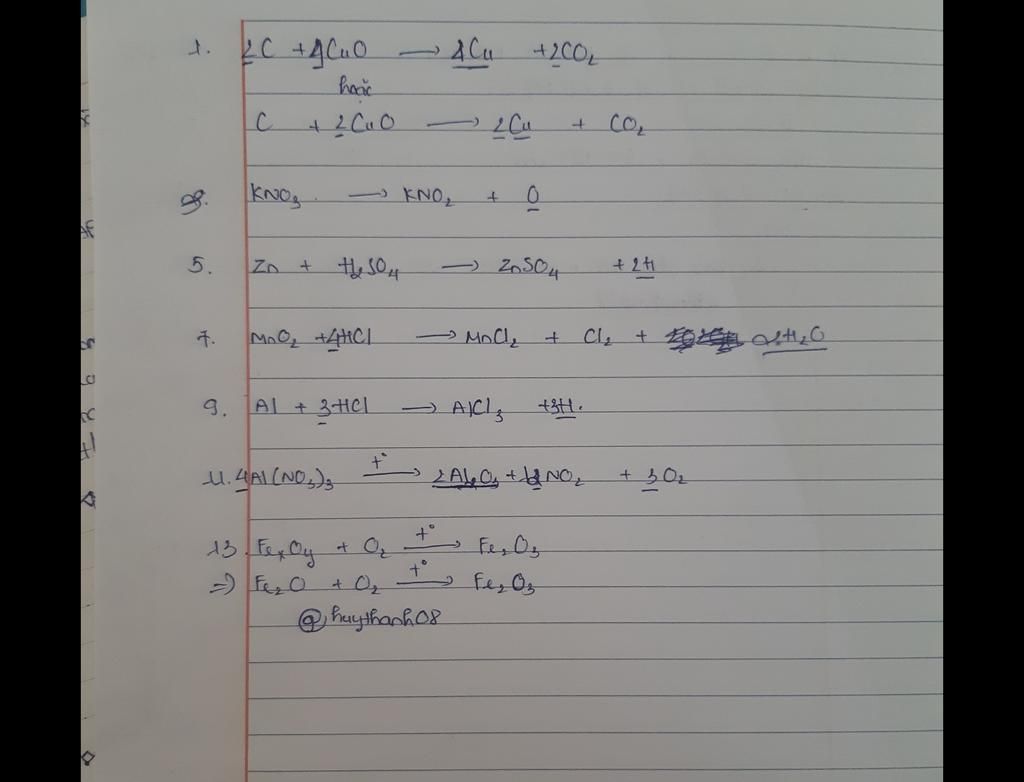 1. 2C + 4CuO → 4Cu + 2CO₂
hoặc
C + 2CuO → 2Cu + CO₂
3. KNO₃ → KNO₂ + O
5. Zn + H₂SO₄ → ZnSO₄ + 2H
7. MnO₂ + 4HCl → MnCl₂ + Cl₂ + 2H₂O
9. Al + 3HCl → AlCl₃ + 3H.
11. 4Al(NO₃)₃ t° → 2Al₂O₃ + 12NO₂ + 3O₂
13. FeₓOy + O₂ t° → Fe₂O₃
⇒ Fe₂O + O₂ t° → Fe₂O₃
@huythanh08